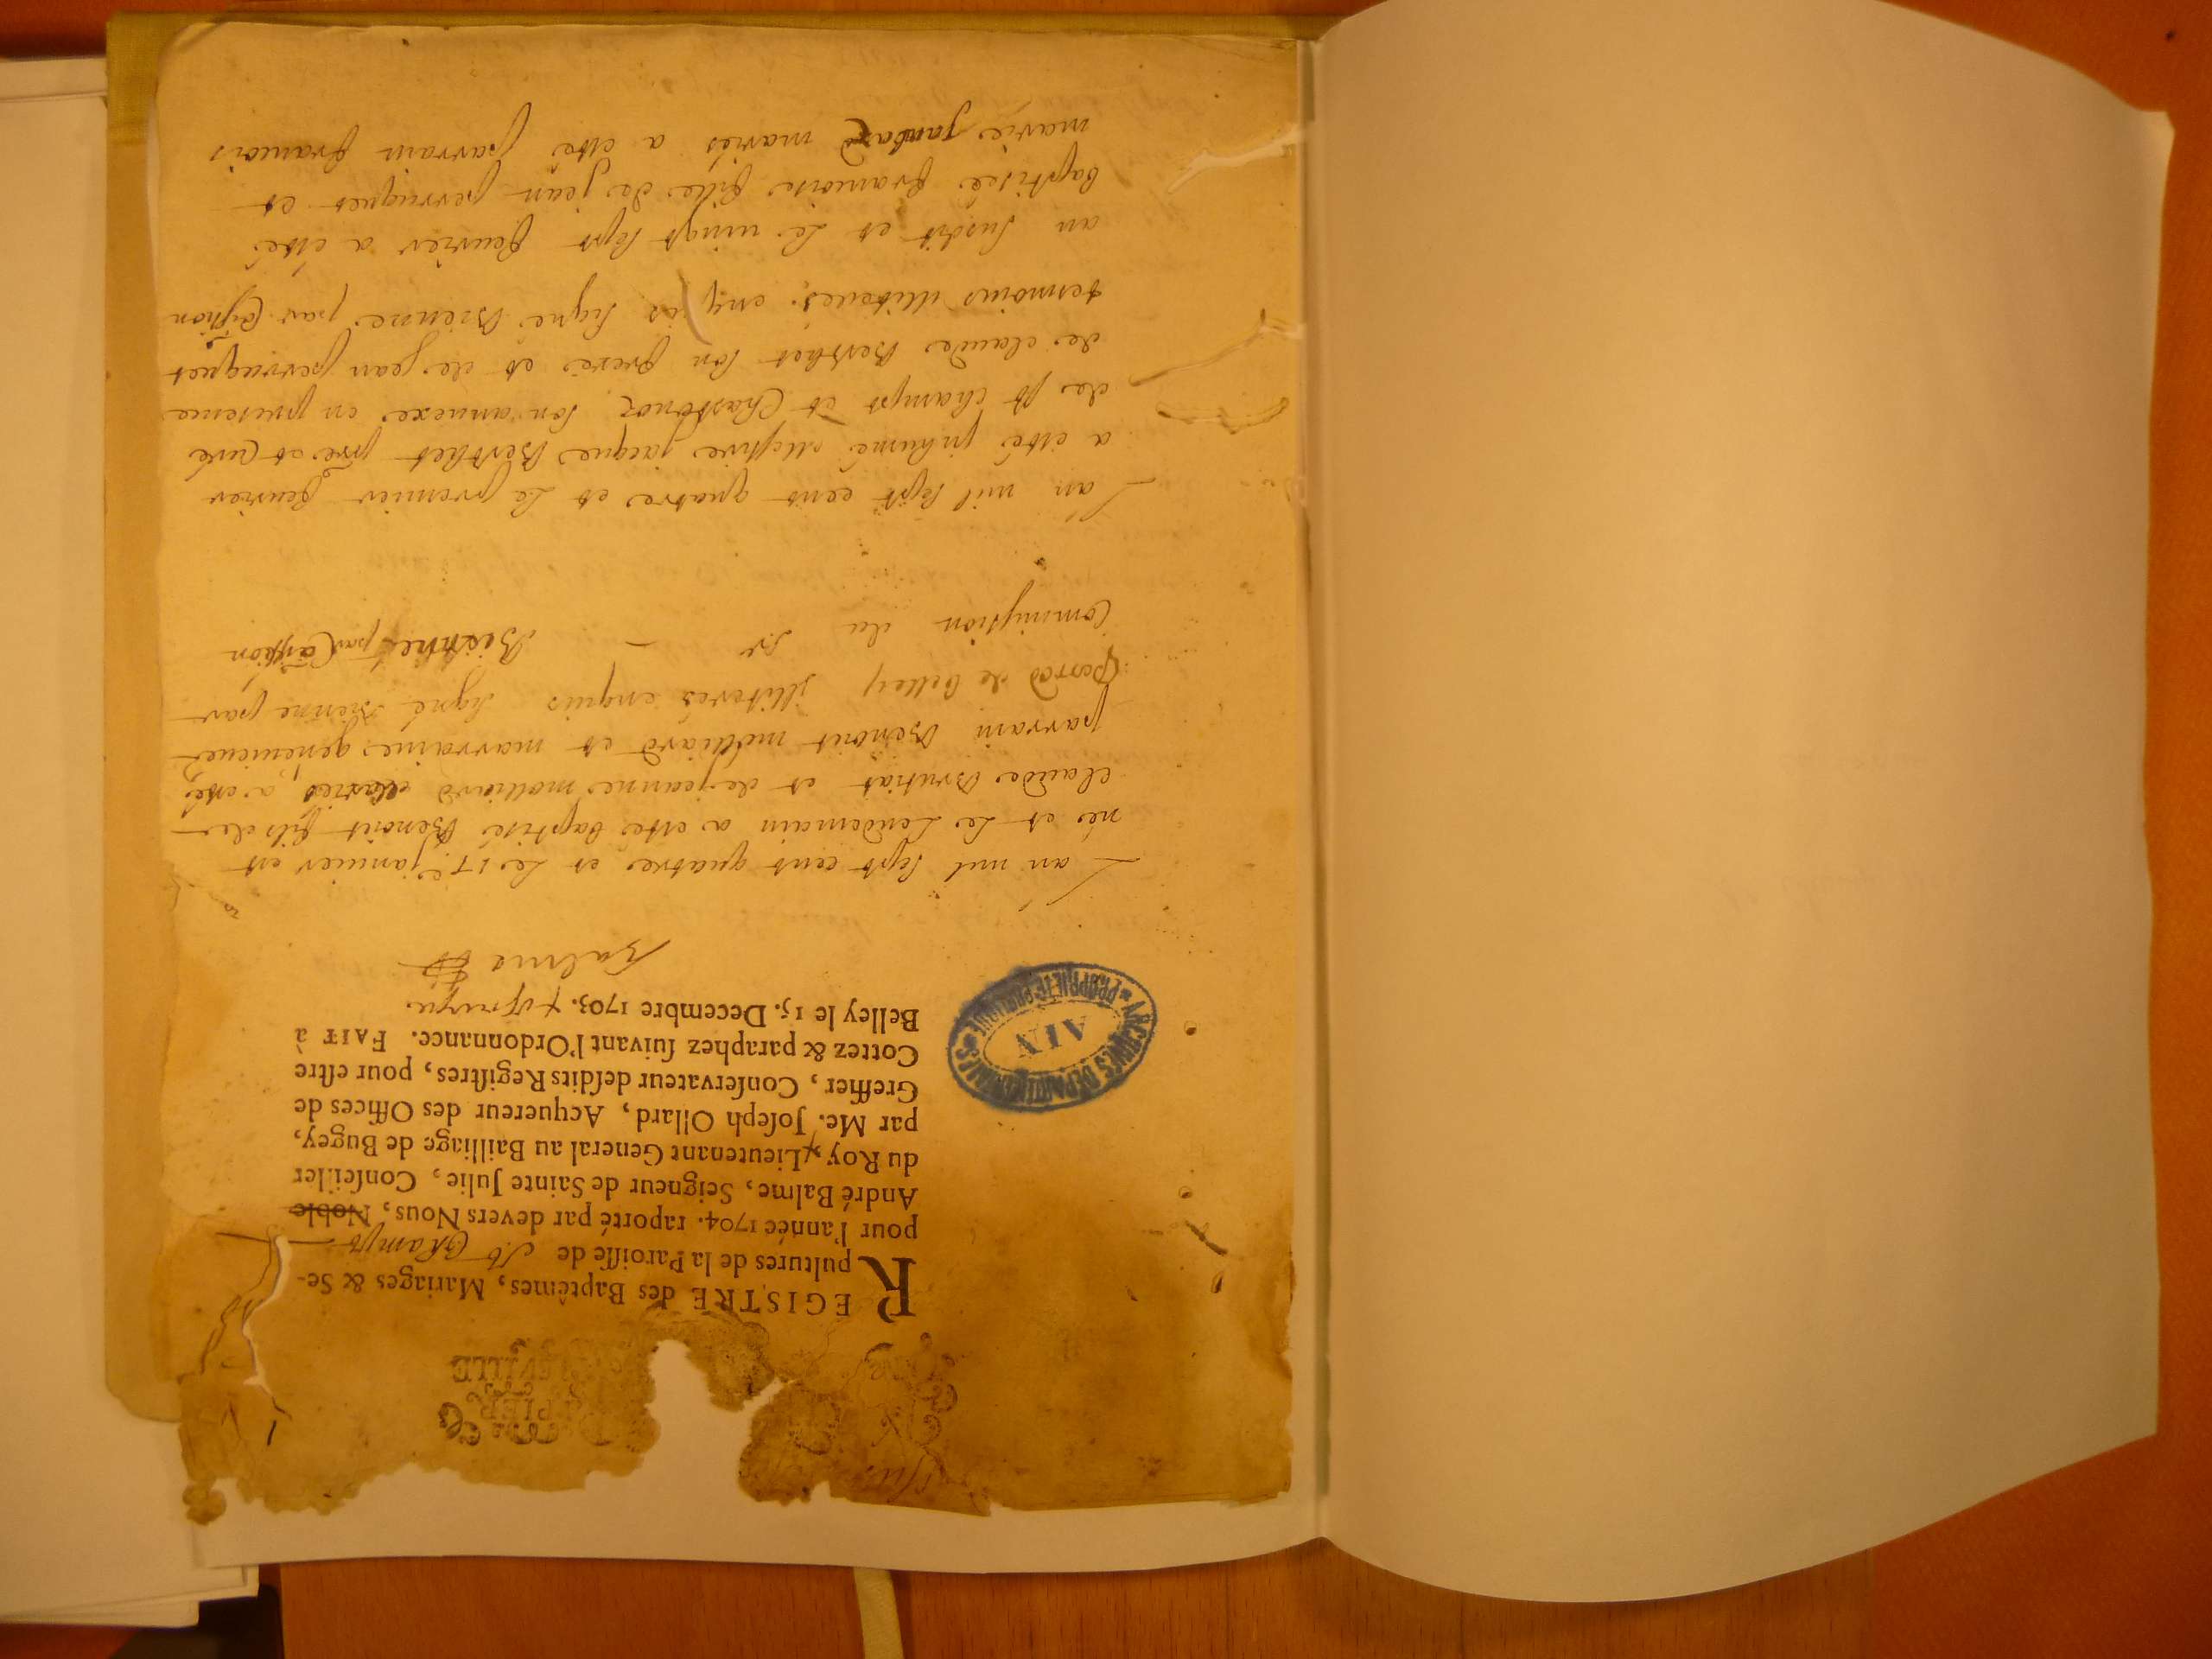 REGISTRE des Baptêmes, Mariages & Se-
pultures de la Paroiſſe de St Champt
pour l'année 1704. raporté par devers Nous, Noble
André Balme, Seigneur de Sainte Julie, Conſeiller
du Roy, Lieutenant General au Bailliage de Bugey,
par Me. Joſeph Ollard, Acquereur des Offices de
Greffier, Conſervateur deſdits Regiſtres, pour eſtre
Cottez & paraphez ſuivant l'Ordonnance. FAIT à
Belley le 15. Decembre 1703.
Balme
ARCHIVES DEPARTEMENTALES
AIN
PROPRIETE PUBLIQUE
L'an mil sept cent quatre et le 17e janvier est
né et le lendemain a esté baptisé Benoit fils de
claude Brutiat et de jeanne molliard mariés, a esté
parrain Benoit molliard et marraine genevieve
perrod de belley illiterés enquis signé Bienne par
Commission du Sr
Bienne par Cõssion
L'an mil sept cent quatre et le premier feuvrier
a esté inhumé Messire jacque Berthet pre et Curé
de st champt et Chastonod son annexe en presence
de claude Berthet son frere et de jean perruquet
temoins illiterés enquis signé Bienne par Cõssion
an susdit et le vingt sept feuvrier a esté
baptisée francoise fille de jean perruquet et
marie jambaz mariés a esté parrain francois